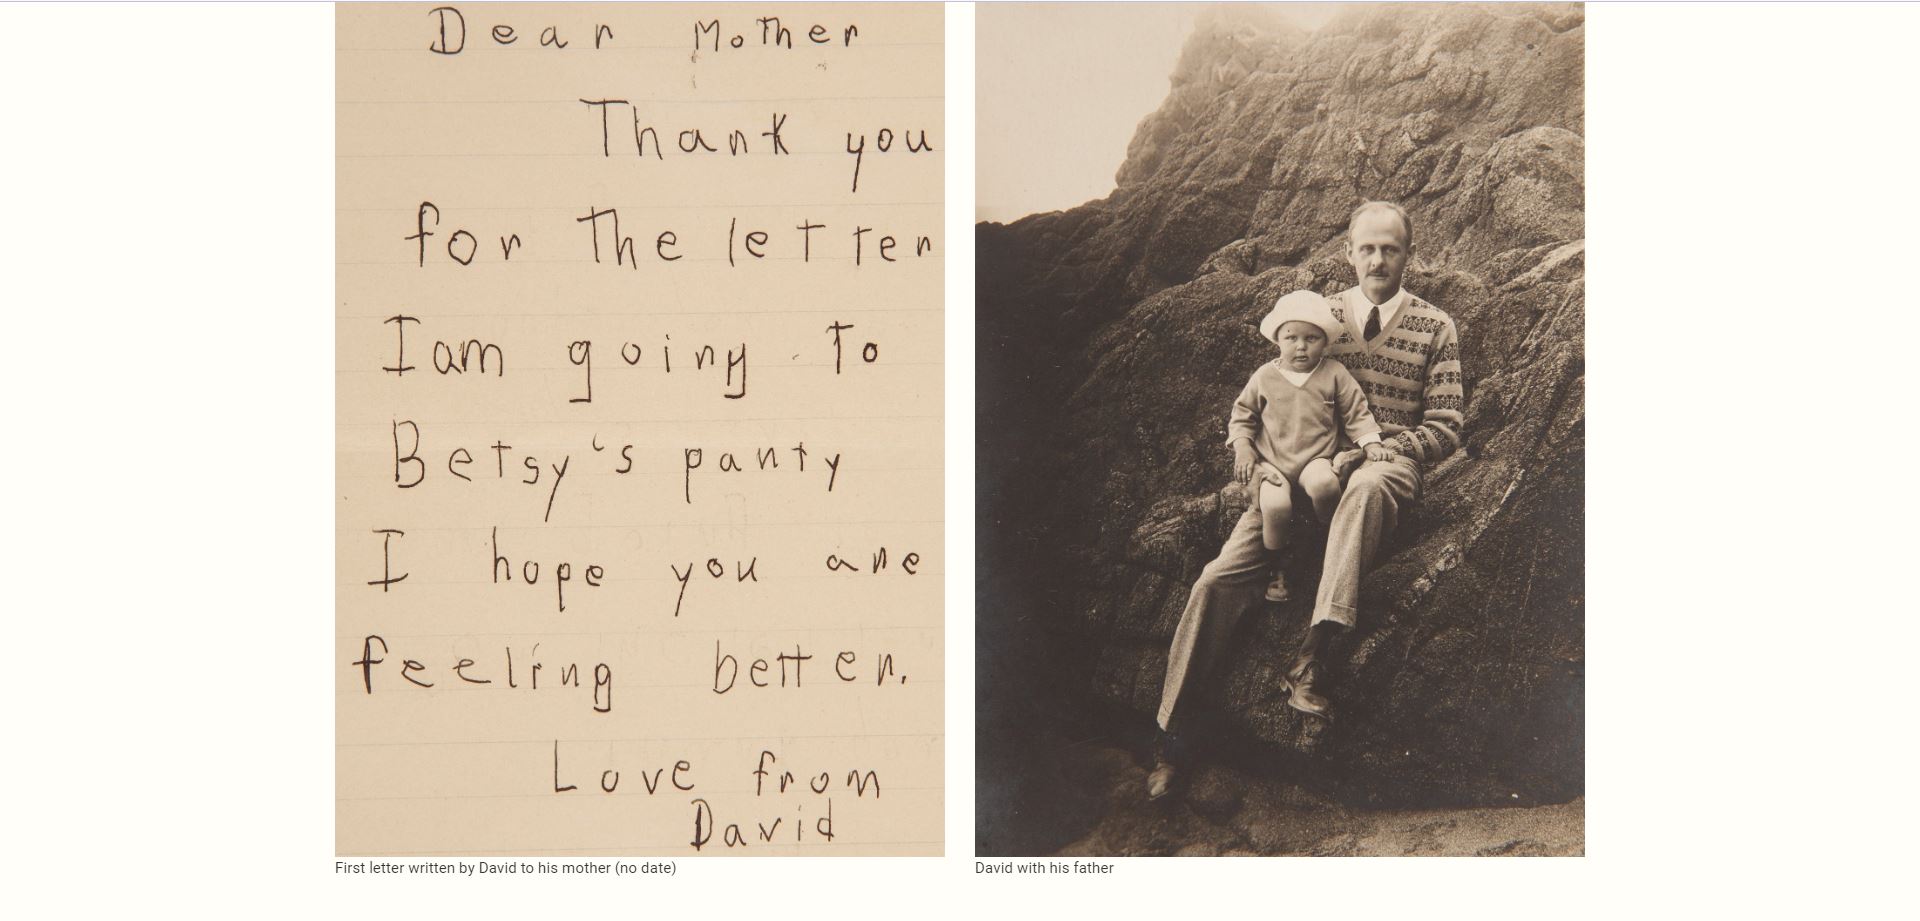 Dear Mother
Thank you
for the letter
I am going to
Betsy's party
I hope you are
feeling better.
Love from
David
First letter written by David to his mother (no date)
David with his father